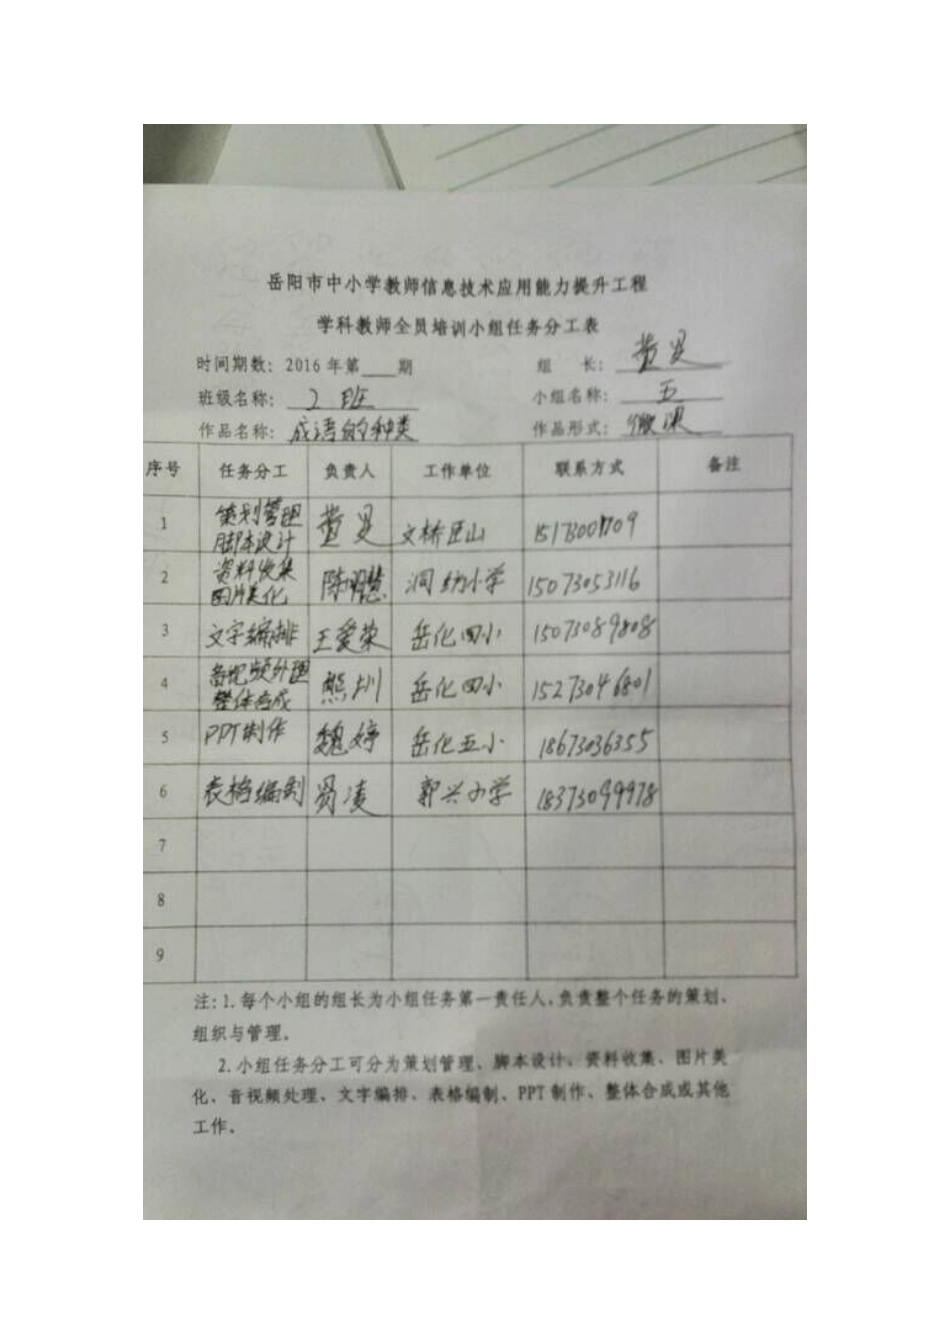 岳阳市中小学教师信息技术应用能力提升工程
学科教师全员培训小组任务分工表
时间期数：2016 年第____期 组 长：
班级名称：2 班 小组名称：五
作品名称：成语的种类 作品形式：微课
序号 任务分工 负责人 工作单位 联系方式 备注
1 策划管理 脚本设计 文桥
2 资料收集 图片美化 陈明慧 洞幼小学 15073053116
3 文字编排 王爱荣 岳化四小 15073089808
4 音视频处理 整体合成 熊圳 岳化四小 15273046801
5 PPT制作 魏婷 岳化五小 18673036355
6 表格编制 郭兴小学 18373099978
7
8
9
注：1.每个小组的组长为小组任务第一责任人，负责整个任务的策划、
组织与管理。
2.小组任务分工可分为策划管理、脚本设计、资料收集、图片美
化、音视频处理、文字编排、表格编制、PPT 制作、整体合成或其他
工作。